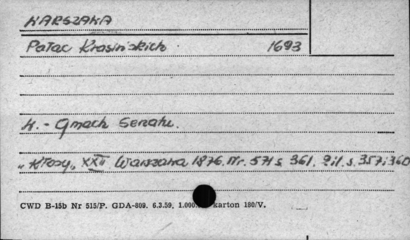 WARSZAWA
Pałac Krasińskich 1693
K. - Gmach Senatu.
"Kłosy" XXII Warszawa 1876. Nr. 571 s. 361. Ził. s. 357 i 360
CWD B-15b Nr 515/P. GDA-809. 6.2.59, 1.000. karton 180/V.